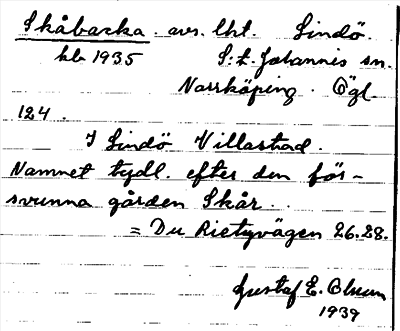 Skåbacka. avs. lht. Lindö.
hb 1935 S:t Johannis sn.
Norrköping. Ögl
124.
I Lindö Villastad.
Namnet tydl. efter den för-
svunna gården Skår.
= Du Rietzvägen 26.28.
Gustaf E. Olsson
1939